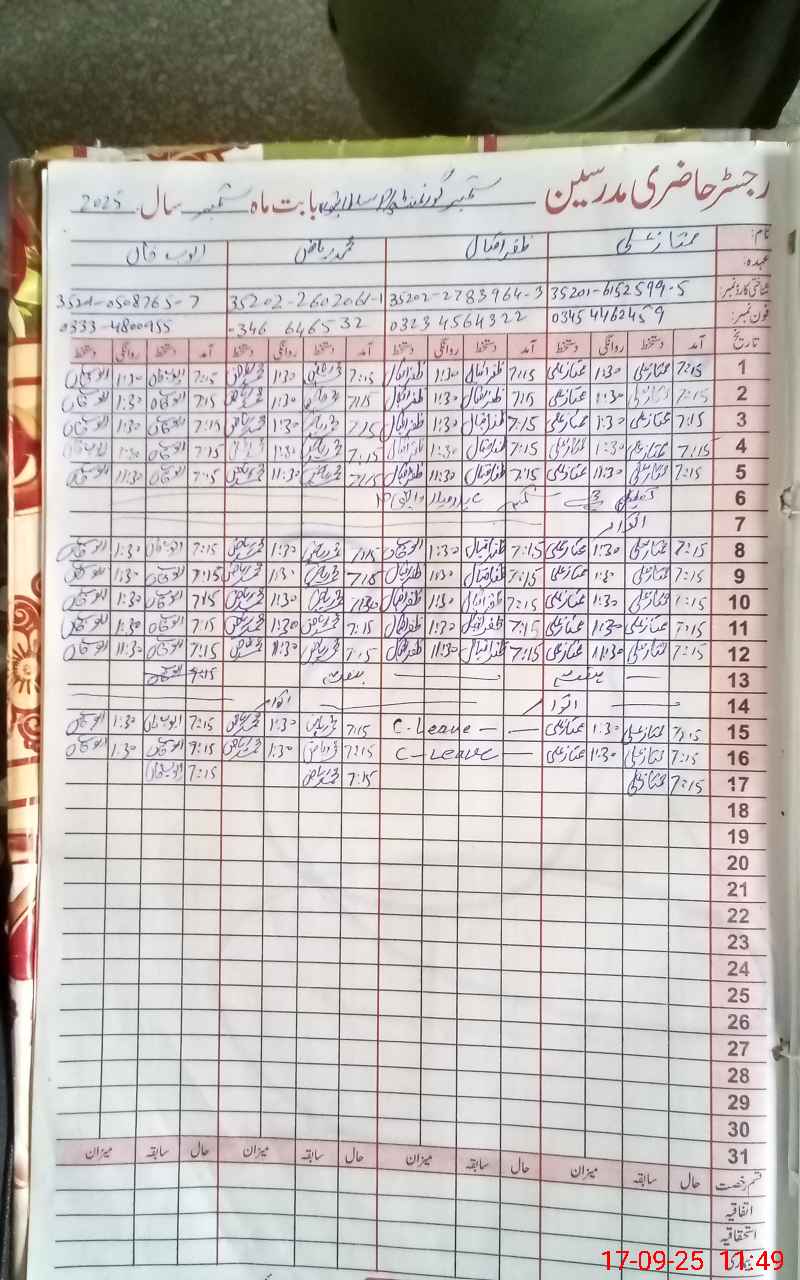 رجسٹر حاضری مدرسین ستمبر گورنمنٹ بابت ماہ ستمبر سال 2025
نام: ممتاز علی ظفر اقبال محمد ریاض ایوب خان
عہدہ:
شناختی کارڈ نمبر: 35201-6152599-5 35202-2783964-3 35202-2602061-1 3520-0508765-7
فون نمبر: 0345 4462459 0323 4564322 -346 6465 32 0333-4800955
تاریخ آمد دستخط روانگی دستخط آمد دستخط روانگی دستخط آمد دستخط روانگی دستخط آمد دستخط روانگی دستخط
1 7:15 ممتاز علی 1:30 ممتاز علی 7:15 ظفر اقبال 1:30 ظفر اقبال 7:15 محمد ریاض 1:30 محمد ریاض 7:15 ایوب خان 1:30 ایوب خان
2 7:15 ممتاز علی 1:30 ممتاز علی 7:15 ظفر اقبال 1:30 ظفر اقبال 7:15 محمد ریاض 1:30 محمد ریاض 7:15 ایوب خان 1:30 ایوب خان
3 7:15 ممتاز علی 1:30 ممتاز علی 7:15 ظفر اقبال 1:30 ظفر اقبال 7:15 محمد ریاض 1:30 محمد ریاض 7:15 ایوب خان 1:30 ایوب خان
4 7:15 ممتاز علی 1:30 ممتاز علی 7:15 ظفر اقبال 1:30 ظفر اقبال 7:15 محمد ریاض 1:30 محمد ریاض 7:15 ایوب خان 1:30 ایوب خان
5 7:15 ممتاز علی 11:30 ممتاز علی 7:15 ظفر اقبال 11:30 ظفر اقبال 7:15 محمد ریاض 11:30 محمد ریاض 7:15 ایوب خان 11:30 ایوب خان
6
7 اتوار
8 7:15 ممتاز علی 1:30 ممتاز علی 7:15 ظفر اقبال 1:30 ایوب خان 7:15 محمد ریاض 1:30 محمد ریاض 7:15 ایوب خان 1:30 ایوب خان
9 7:15 ممتاز علی 1:30 ممتاز علی 7:15 ظفر اقبال 1:30 ظفر اقبال 7:15 محمد ریاض 1:30 محمد ریاض 7:15 ایوب خان 1:30 ایوب خان
10 7:15 ممتاز علی 1:30 ممتاز علی 7:15 ظفر اقبال 1:30 ظفر اقبال محمد ریاض 1:30 محمد ریاض 7:15 ایوب خان 1:30 ایوب خان
11 7:15 ممتاز علی 11:30 ممتاز علی 7:15 ظفر اقبال 1:30 ظفر اقبال 7:15 محمد ریاض 1:30 محمد ریاض 7:15 ایوب خان 1:30 ایوب خان
12 7:15 ممتاز علی 11:30 ممتاز علی 7:15 ظفر اقبال 11:30 ظفر اقبال 7:15 محمد ریاض 11:30 محمد ریاض 7:15 ایوب خان 11:30 ایوب خان
13 ہفتہ ہفتہ 7:15 ایوب خان
14 اتوار اتوار
15 7:15 ممتاز علی 1:30 ممتاز علی C-Leave 7:15 محمد ریاض 1:30 محمد ریاض 7:15 ایوب خان 1:30 ایوب خان
16 7:15 ممتاز علی 11:30 ممتاز علی C-Leave 7:15 محمد ریاض 1:30 محمد ریاض 7:15 ایوب خان 1:30 ایوب خان
17 7:15 ممتاز علی 7:15 محمد ریاض 7:15 ایوب خان
18
19
20
21
22
23
24
25
26
27
28
29
30
31
قسم رخصت حال سابقہ میزان حال سابقہ میزان حال سابقہ میزان حال سابقہ میزان
اتفاقیہ
استحقاقیہ
17-09-25 11:49